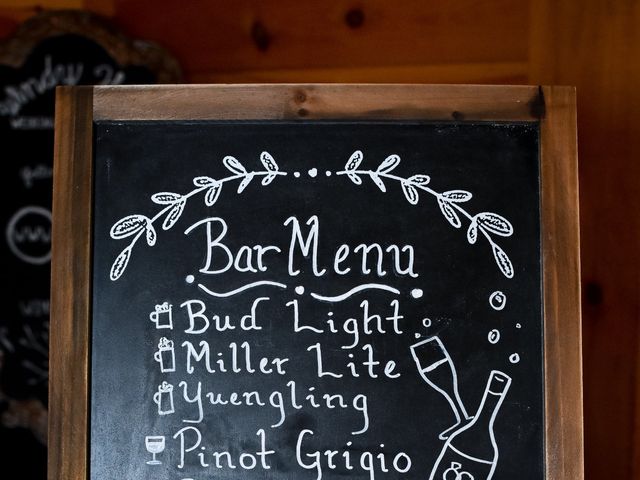 Bar Menu
Bud Light
Miller Lite
Yuengling
Pinot Grigio